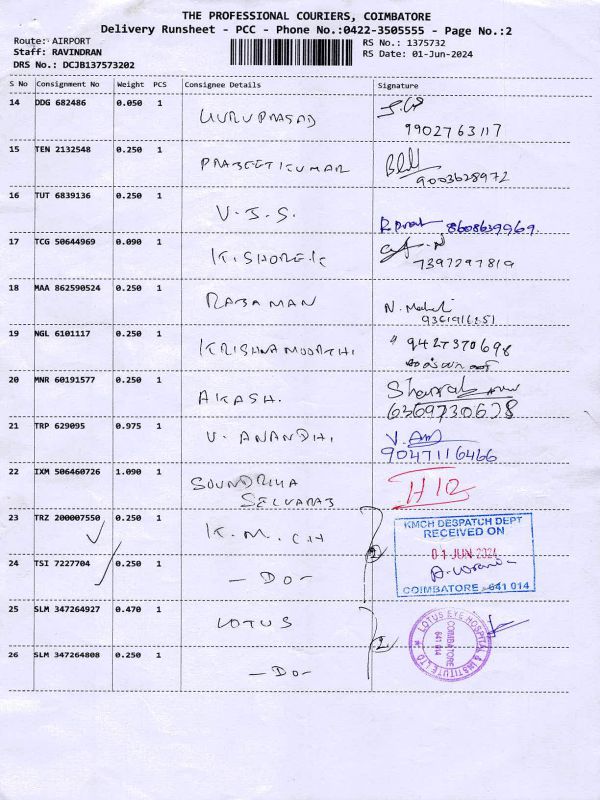 THE PROFESSIONAL COURIERS, COIMBATORE
Delivery Runsheet - PCC - Phone No.:0422-3505555 - Page No.:2
Route: AIRPORT
Staff: RAVINDRAN
DRS No.: DCJB137573202
RS No.: 1375732
RS Date: 01-Jun-2024
S No Consignment No Weight PCS Consignee Details Signature
14 DDG 682486 0.050 1 GURUPRASAD
9902763117
15 TEN 2132548 0.250 1 PRABEETIKUMAR
9003628972
16 TUT 6839136 0.250 1 V.J.S.
8608639969.
17 TCG 50644969 0.090 1 KISHORE.K
7397297819
18 MAA 862590524 0.250 1 RAJAMAN
19 NGL 6101117 0.250 1 KRISHNAMOORTHI
9427370698
20 MNR 60191577 0.250 1 AKASH.
6369730628
21 TRP 629095 0.975 1 V. ANANDHI.
9047116466
22 IXM 506460726 1.090 1 SOUNDRIYA
SELVARAJ
23 TRZ 200007550 0.250 1 K.M.CH
KMCH DESPATCH DEPT
RECEIVED ON
01 JUN 2024
COIMBATORE - 641 014
24 TSI 7227704 0.250 1 -DO-
2
25 SLM 347264927 0.470 1 LOTUS
LOTUS EYE HOSPITAL & INSTITUTE LTD
COIMBATORE
641 014
2
26 SLM 347264808 0.250 1 -DO-